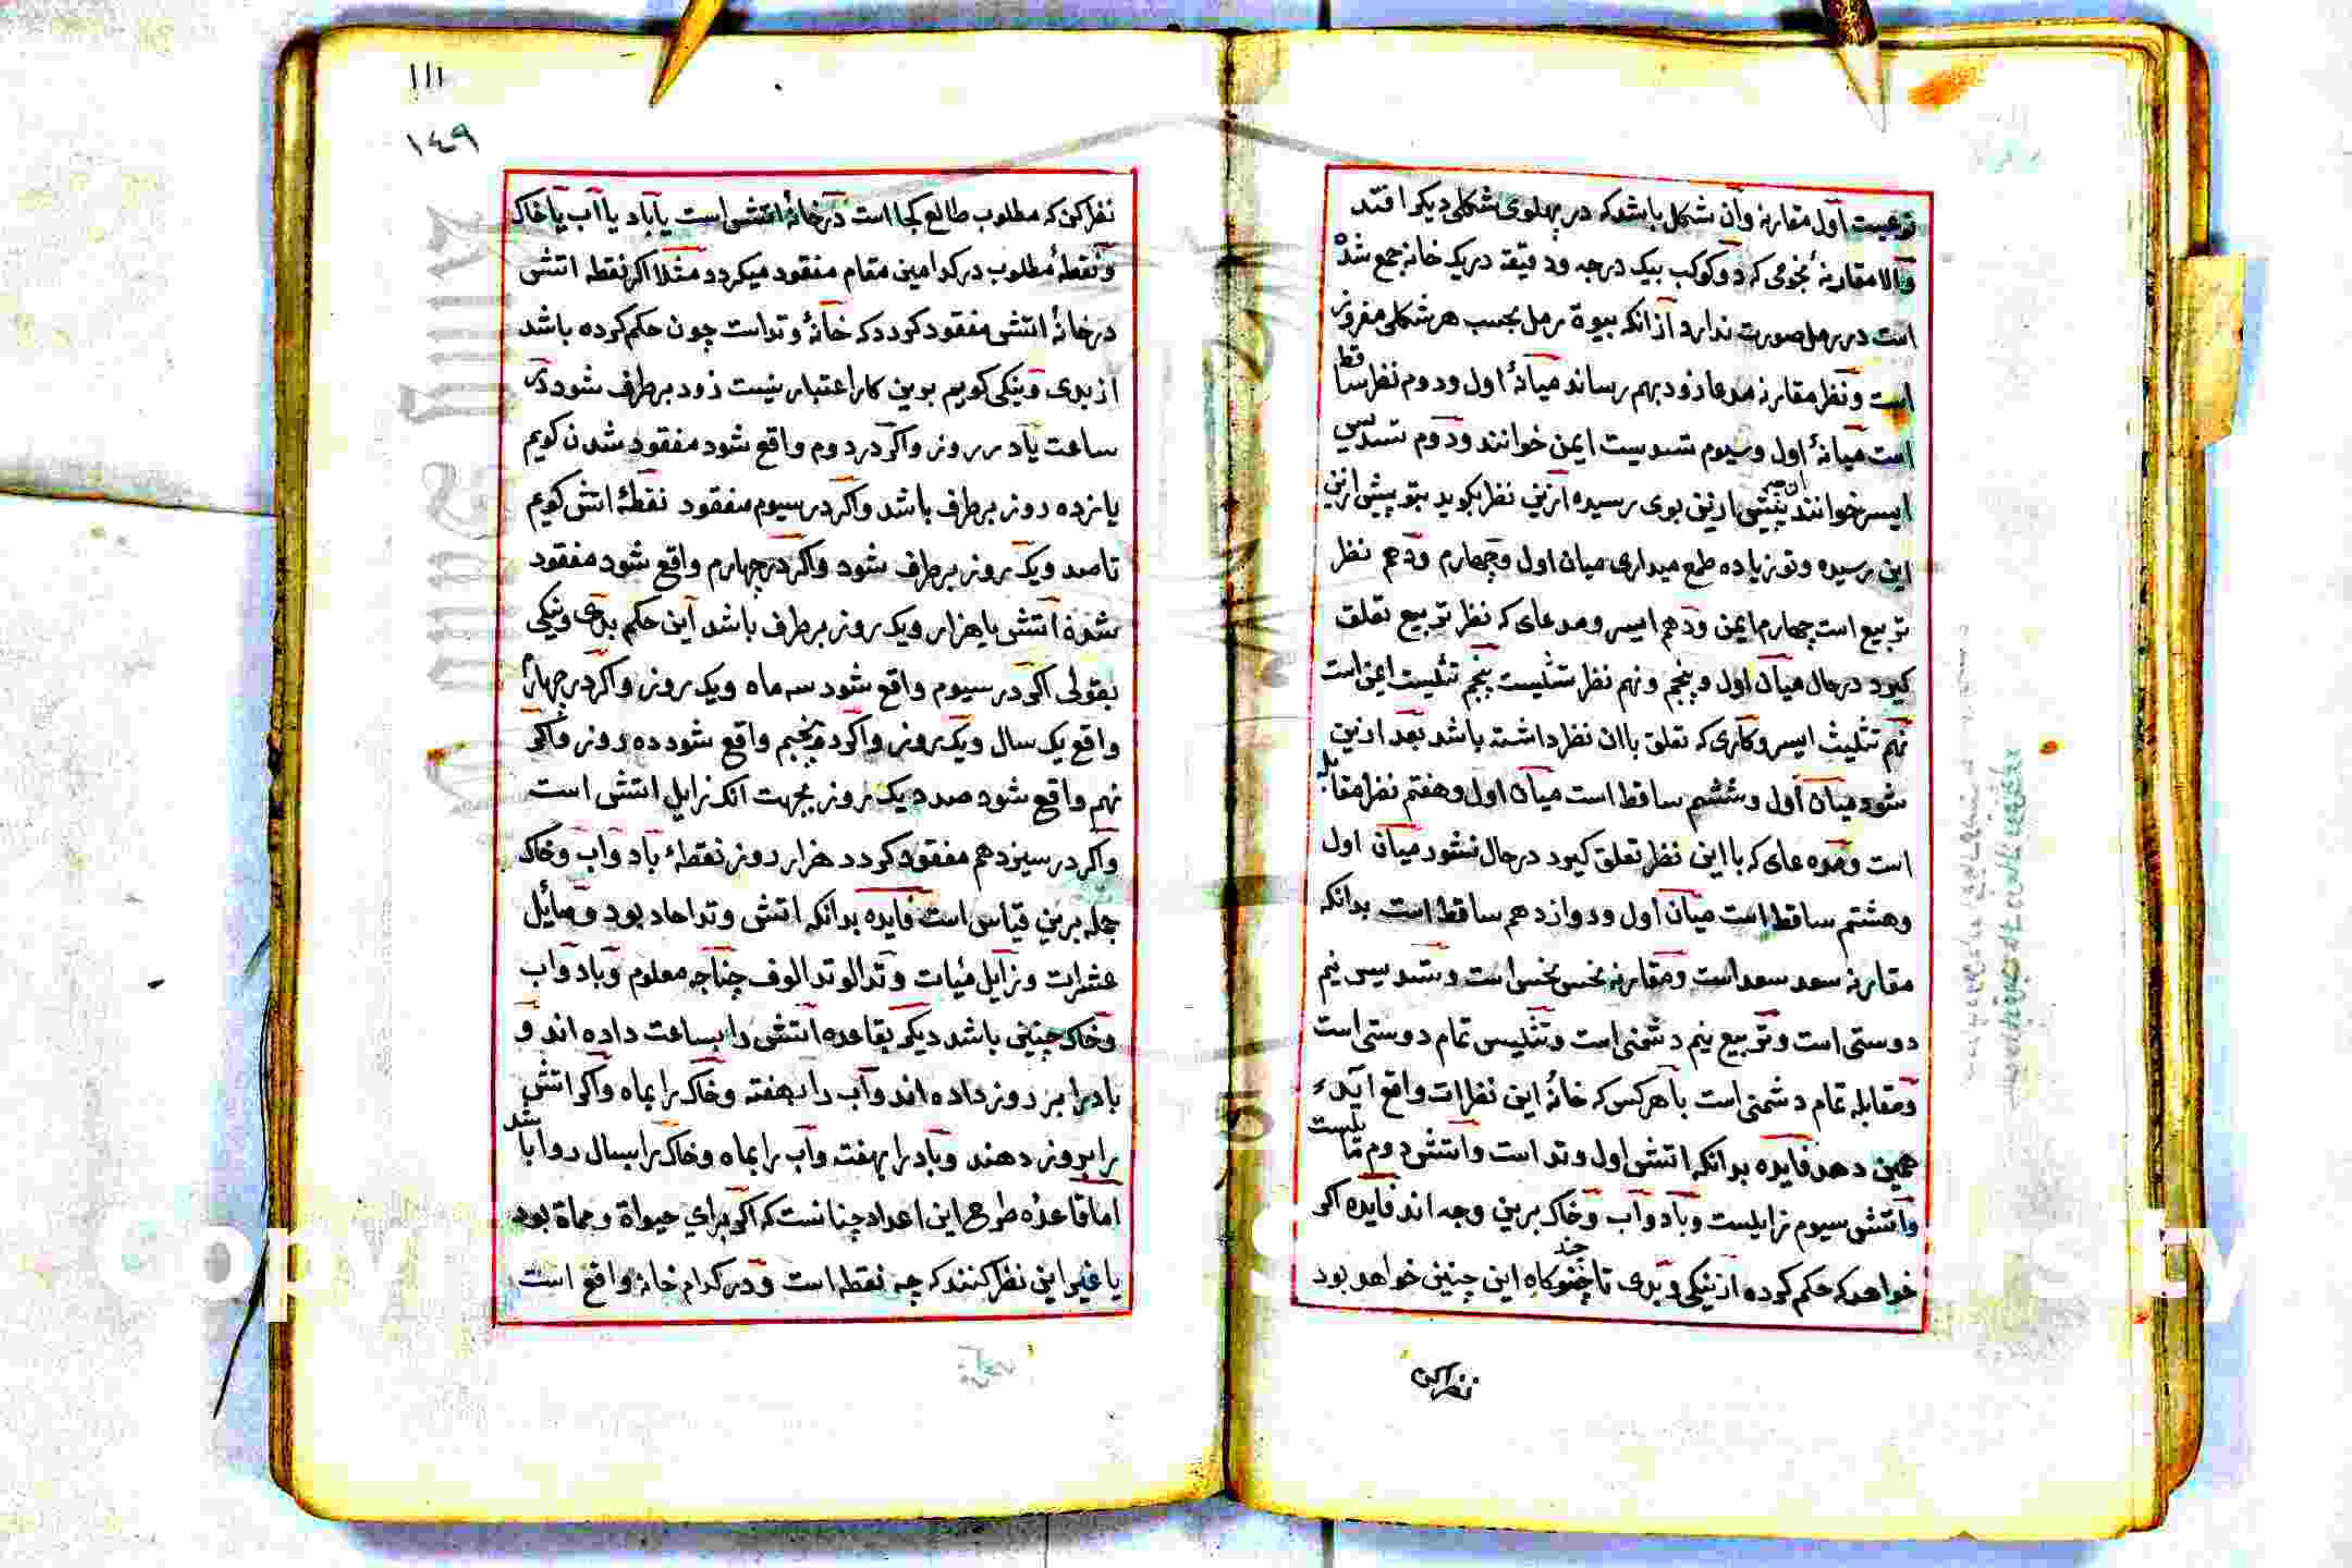 نوعیست اول مقارنه وآن شکل باشد که در پهلوی شکلی دیکر افتد
والا مقارنهٔ نجومی که دو کوکب بیک درجه ودقیقه دریک خانه جمع شدْ
است در رمل صورت ندارد ازانکه بیوة رمل بحسب هر شکلی مفروز
است ونظر مقارنه مدعا زود بهم رساند میانهٔ اول ودوم نظر ساقط
است میانهٔ اول وسیوم تسدیست ایمن خوانند ودوم تسدیس
ایسر خوانند ازین بوی رسیده ازین نظر بکوید بتو پیش ازین
این رسیده وتو زیاده طمع میداری میان اول وچهارم ودهم نظر
تربیع است چهارم ایمن ودهم ایسر ومدعای که نظر تربیع تعلق
کیرد درحال میان اول وپنجم ونهم نظر تثلیست پنجم تثلیست ایمن است
نهم تثلیث ایسر وکاری که تعلق باان نظر داشته باشد بعد ازین
شود میان اول وششم ساقط است میان اول وهفتم نظر مقابله
است ومده عای که بااین نظر تعلق کیرد درحال نشود میان اول
وهشتم ساقط است میان اول ودوازدهم ساقط است بدانکه
مقارنه سعد سعد است ومقارنه نحس نحس است وتسدیس نیم
دوستی است وتربیع نیم دشمنی است وتثلیس تمام دوستی است
ومقابله تمام دشمنی است باهرکس که خانهٔ این نظرات واقع آید
همین دهد فایده بدانکه اتشی اول وتد است واتشی دوم مایلست
واتشی سیوم زایلست وباد وآب وخاک برین وجه اند فایده اکر
خواهد که حکم کرده از نیکی وبدی تا چند کاه این چنین خواهد بود
نظر کن
١١١
١٤٩
نظر کن که مطلوب طالع کجا است در خانهٔ اتشی است یاباد یاآب یاخاک
ونقطهٔ مطلوب در کدامین مقام مفقود میکردد مثلا اکر نقطه اتشی
در خانهٔ اتشی مفقود کردد که خانهٔ وتد است چون حکم کرده باشد
از بدی ونیکی کویم بوین کار اعتبار نیست زود برطرف شود در
ساعت یادر روز واکر در دوم واقع شود مفقود شدن کویم
پانزده روز برطرف باشد واکر در سیوم مفقود نقطهٔ اتش کویم
تاصد ویک روز برطرف شود واکر در چهارم واقع شود مفقود
شدهٔ اتشی باهزار ویک روز برطرف باشد این حکم بدی ونیکی
بقولی اکر در سیوم واقع شود سه ماه ویک روز واکر در چهارم
واقع یک سال ویک روز واکر در پنجم واقع شود ده روز واکر
نهم واقع شود صد ویک روز بجهت انکه زایل اتشی است
واکر در سیزدهم مفقود کردد هزار روز نقطهٔ باد وآب وخاک
جمله برین قیاس است فایده بدانکه اتشی وتد احاد بود ومائل
عشرات وزایل مئیات وتد الوتد الوف چناچه معلوم وباد وآب
وخاک چنین باشد دیکر بقاعده اتشی را بساعت داده اند و
باد را بر روز داده اند وآب را بهفته وخاک را بماه واکر اتش
را بروز دهند وباد را بهفته وآب را بماه وخاک را بسال روا باشد
اما قاعدهٔ طرح این اعداد چنانست که اکر برای حیواة ومماة بود
یا غیر این نظر کنند که چه نقطه است ودر کدام خانه واقع است